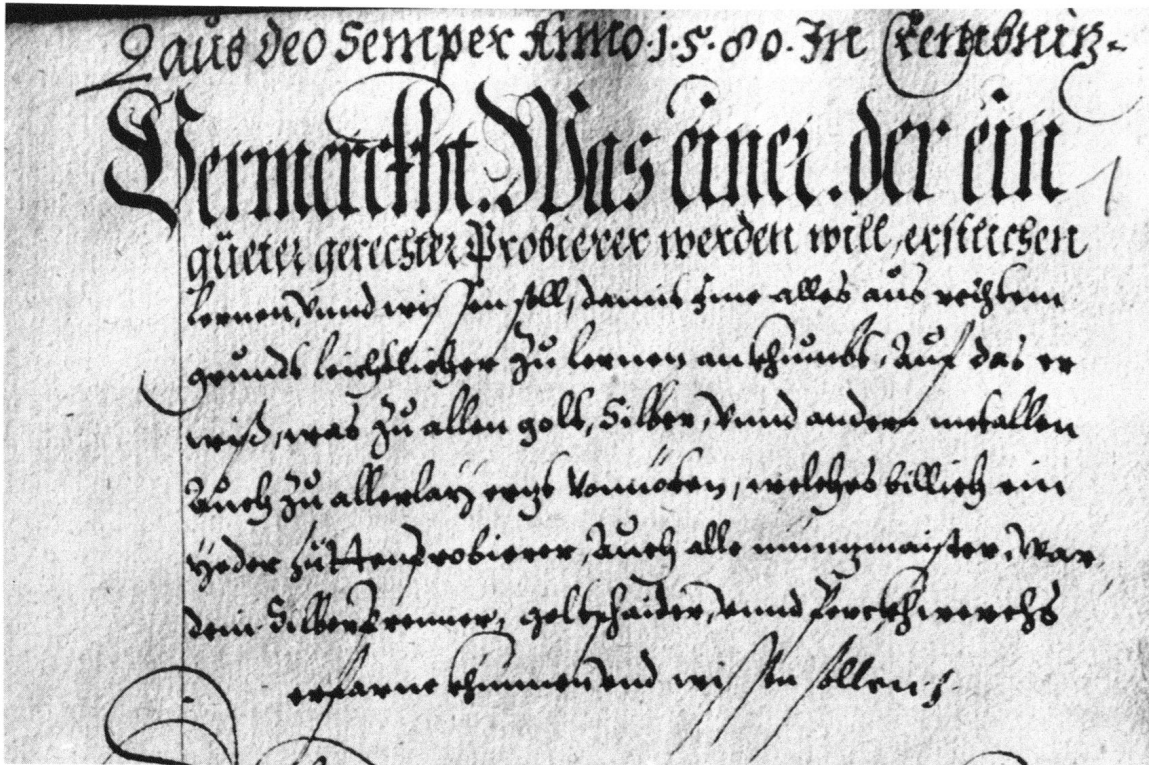 Laus deo Semper Anno 1.5.80. In Crembnitz
Vermerckht. Was einer. der ein
gueter gerechter Probierer werden will, erstlichen
lernen, Vnnd wissen soll, damit Ime alles aus rechtem
grundt leichtlicher zu lernen ankhumbt, Auf das er
wiß, was zu allen golt, Silber, Vnnd andern metallen
Auch zu allerlaÿ erzt Vonnöten, welches billich ein
Yeder hüttenprobierer, Auch alle munzmaister, War,
dein Silberprenner, goltschaider, Vnnd Perckhwerchs
erfarne khunnen vnd wissen sollen.